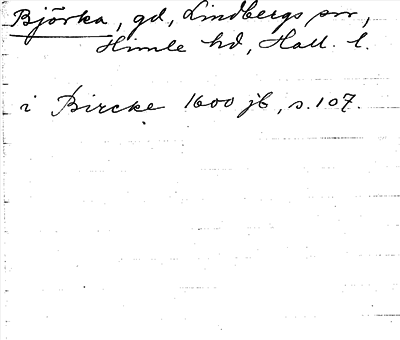 Björka, gd, Lindbergs sn,
Himle hd, Hall. l.
i Bircke 1600 jb, s. 107.